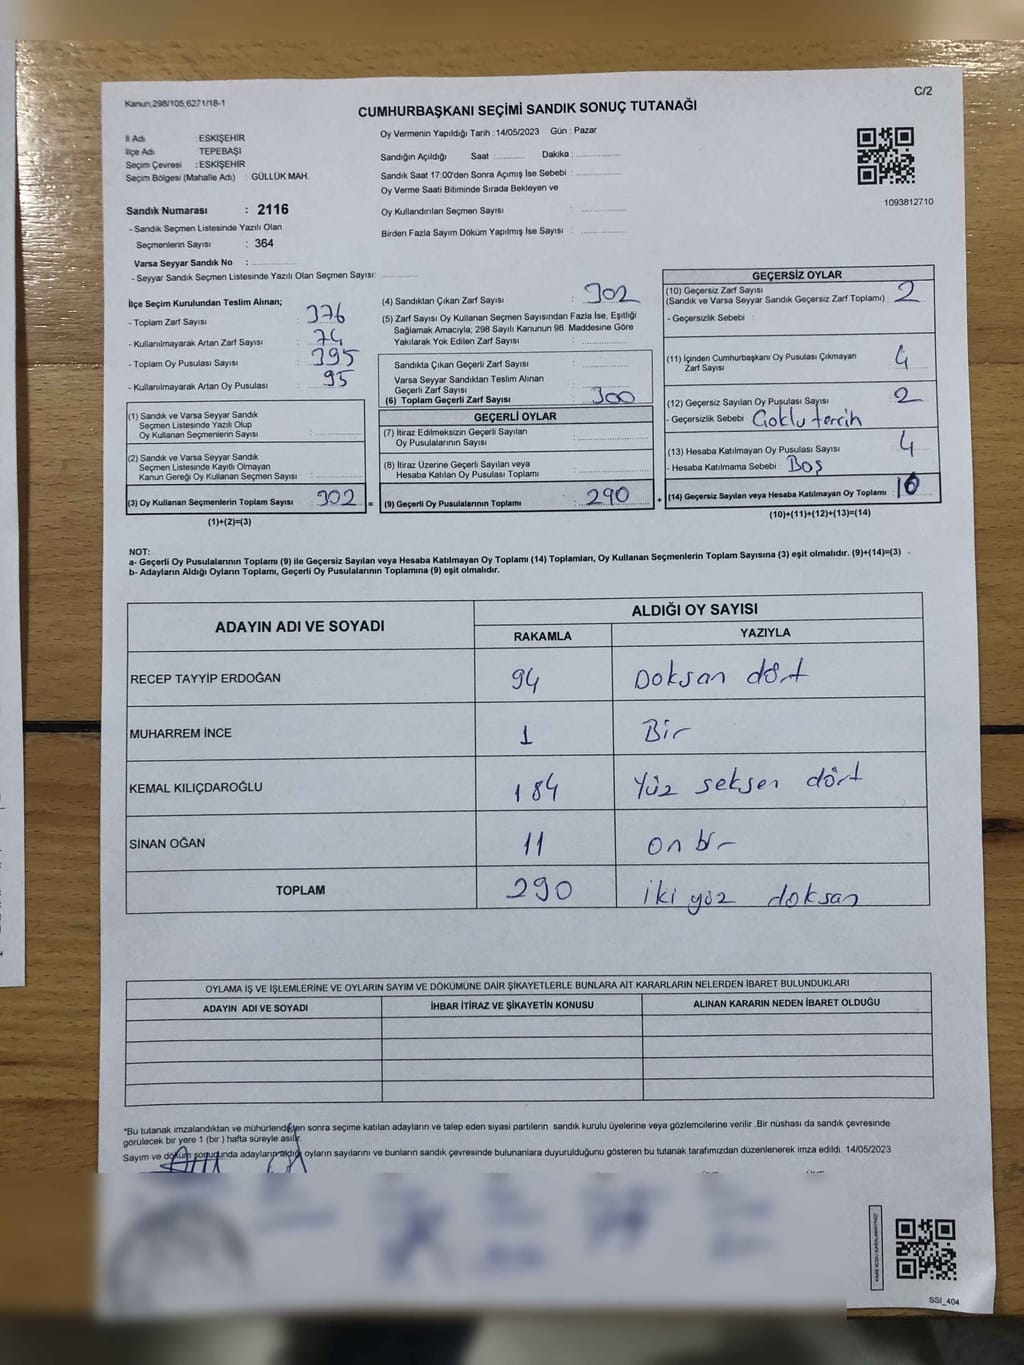 Kanun,298/105,6271/18-1
C/2
CUMHURBAŞKANI SEÇİMİ SANDIK SONUÇ TUTANAĞI
İl Adı : ESKİŞEHİR
İlçe Adı TEPEBAŞI
Seçim Çevresi : ESKİŞEHİR
Seçim Bölgesi (Mahalle Adı) : GÜLLÜK MAH.
Oy Vermenin Yapıldığı Tarih : 14/05/2023 Gün : Pazar
Sandığın Açıldığı Saat :........... Dakika :...............
Sandık Saat 17:00'den Sonra Açımış İse Sebebi :...............
Oy Verme Saati Bitiminde Sırada Bekleyen ve
Oy Kullandırılan Seçmen Sayısı : ...............
Birden Fazla Sayım Döküm Yapılmış İse Sayısı : ...............
1093812710
Sandık Numarası : 2116
- Sandık Seçmen Listesinde Yazılı Olan
Seçmenlerin Sayısı : 364
Varsa Seyyar Sandık No :...............
- Seyyar Sandık Seçmen Listesinde Yazılı Olan Seçmen Sayısı: ...............
İlçe Seçim Kurulundan Teslim Alınan;
- Toplam Zarf Sayısı : 376
- Kullanılmayarak Artan Zarf Sayısı : 74
- Toplam Oy Pusulası Sayısı : 395
- Kullanılmayarak Artan Oy Pusulası : 95
(1) Sandık ve Varsa Seyyar Sandık
Seçmen Listesinde Yazılı Olup
Oy Kullanan Seçmenlerin Sayısı :...............
(2) Sandık ve Varsa Seyyar Sandık
Seçmen Listesinde Kayıtlı Olmayan
Kanun Gereği Oy Kullanan Seçmen Sayısı :...............
(3) Oy Kullanan Seçmenlerin Toplam Sayısı : 302 =
(1)+(2)=(3)
(4) Sandıktan Çıkan Zarf Sayısı : 302
(5) Zarf Sayısı Oy Kullanan Seçmen Sayısından Fazla İse, Eşitliği
Sağlamak Amacıyla; 298 Sayılı Kanunun 98. Maddesine Göre
Yakılarak Yok Edilen Zarf Sayısı : ...............
Sandıkta Çıkan Geçerli Zarf Sayısı : ...............
Varsa Seyyar Sandıktan Teslim Alınan
Geçerli Zarf Sayısı : ...............
(6) Toplam Geçerli Zarf Sayısı : 300
GEÇERLİ OYLAR
(7) İtiraz Edilmeksizin Geçerli Sayılan
Oy Pusulalarının Sayısı :...............
(8) İtiraz Üzerine Geçerli Sayılan veya
Hesaba Katılan Oy Pusulası Toplamı :...............
(9) Geçerli Oy Pusulalarının Toplamı : 290 +
GEÇERSİZ OYLAR
(10) Geçersiz Zarf Sayısı
(Sandık ve Varsa Seyyar Sandık Geçersiz Zarf Toplamı) : 2
- Geçersizlik Sebebi :
(11) İçinden Cumhurbaşkanı Oy Pusulası Çıkmayan
Zarf Sayısı 4
(12) Geçersiz Sayılan Oy Pusulası Sayısı : 2
- Geçersizlik Sebebi Çoklu tercih
(13) Hesaba Katılmayan Oy Pusulası Sayısı : 4
- Hesaba Katılmama Sebebi : Boş
(14) Geçersiz Sayılan veya Hesaba Katılmayan Oy Toplamı : 10
(10)+(11)+(12)+(13)=(14)
NOT:
a- Geçerli Oy Pusulalarının Toplamı (9) ile Geçersiz Sayılan veya Hesaba Katılmayan Oy Toplamı (14) Toplamları, Oy Kullanan Seçmenlerin Toplam Sayısına (3) eşit olmalıdır. (9)+(14)=(3)
b- Adayların Aldığı Oyların Toplamı, Geçerli Oy Pusulalarının Toplamına (9) eşit olmalıdır.
ADAYIN ADI VE SOYADI
ALDIĞI OY SAYISI
RAKAMLA YAZIYLA
RECEP TAYYİP ERDOĞAN 94 Doksan dört
MUHARREM İNCE 1 Bir
KEMAL KILIÇDAROĞLU 184 Yüz seksen dört
SİNAN OĞAN 11 on bir
TOPLAM 290 iki yüz doksan
OYLAMA İŞ VE İŞLEMLERİNE VE OYLARIN SAYIM VE DÖKÜMÜNE DAİR ŞİKAYETLERLE BUNLARA AİT KARARLARIN NELERDEN İBARET BULUNDUKLARI
ADAYIN ADI VE SOYADI İHBAR İTİRAZ VE ŞİKAYETİN KONUSU ALINAN KARARIN NEDEN İBARET OLDUĞU
*Bu tutanak imzalandıktan ve mühürlendikten sonra seçime katılan adayların ve talep eden siyasi partilerin sandık kurulu üyelerine veya gözlemcilerine verilir. Bir nüshası da sandık çevresinde
görülecek bir yere 1 (bir) hafta süreyle asılır.
Sayım ve döküm sonucunda adayların aldığı oyların sayılarını ve bunların sandık çevresinde bulunanlara duyurulduğunu gösteren bu tutanak tarafımızdan düzenlenerek imza edildi. 14/05/2023
SSI_404